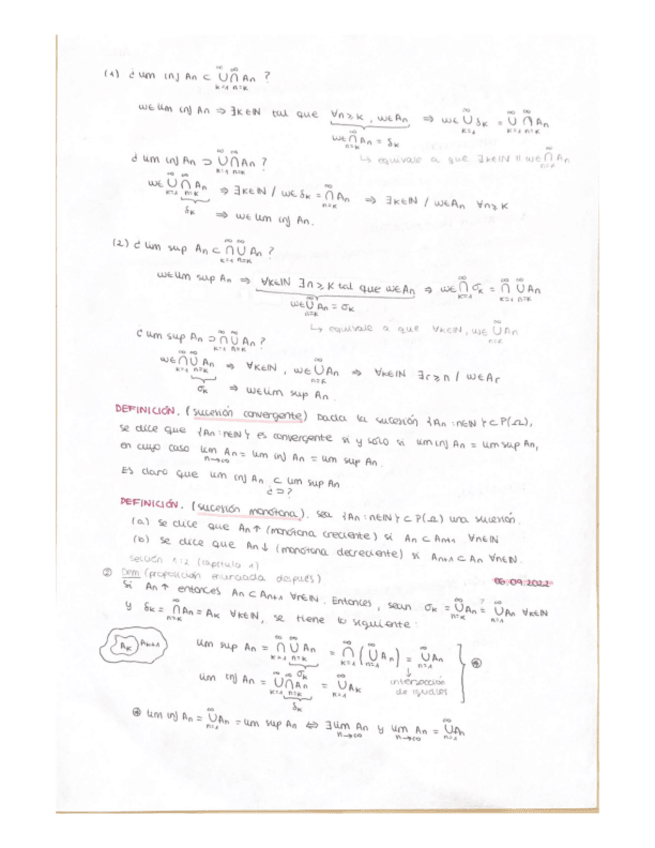 (1) ¿ lim inf An ⊂ ∞⋃k=1 ∞⋂n=k An ?
w∈lim inf An ⇒ ∃k∈ℕ tal que ∀n≥k, w∈An ⇒ w∈ ∞⋃k=1 δk = ∞⋃k=1 ∞⋂n=k An
w∈ ∞⋂n=k An = δk
↳ equivale a que ∃k∈ℕ // w∈ ∞⋂n=k An
¿ lim inf An ⊃ ∞⋃k=1 ∞⋂n=k An ?
w∈ ∞⋃k=1 ∞⋂n=k An ⇒ ∃k∈ℕ / w∈ δk = ∞⋂n=k An ⇒ ∃k∈ℕ / w∈An ∀n≥k
δk ⇒ w∈ lim inf An.
(2) ¿ lim sup An ⊂ ∞⋂k=1 ∞⋃n=k An ?
w∈lim sup An ⇒ ∀k∈ℕ ∃n≥k tal que w∈An ⇒ w∈ ∞⋂k=1 σk = ∞⋂k=1 ∞⋃n=k An
w∈ ∞⋃n=k An = σk
↳ equivale a que ∀k∈ℕ, w∈ ∞⋃n=k An
¿ lim sup An ⊃ ∞⋂k=1 ∞⋃n=k An ?
w∈ ∞⋂k=1 ∞⋃n=k An ⇒ ∀k∈ℕ, w∈ ∞⋃n=k An ⇒ ∀k∈ℕ ∃r≥n / w∈Ar
σk ⇒ w∈lim sup An
DEFINICIÓN. (sucesión convergente) Dada la sucesión {An : n∈ℕ} ⊂ P(Ω),
se dice que {An : n∈ℕ} es convergente si y solo si lim inf An = lim sup An,
en cuyo caso lim n→∞ An = lim inf An = lim sup An.
Es claro que lim inf An ⊂ lim sup An
¿⊃?
DEFINICIÓN. (sucesión monótona). sea {An : n∈ℕ} ⊂ P(Ω) una sucesión.
(a) se dice que An↑ (monótona creciente) si An ⊂ An+1 ∀n∈ℕ
(b) se dice que An↓ (monótona decreciente) si An+1 ⊂ An ∀n∈ℕ.
sección 1.2 (capítulo 1)
② Dem (proposición enunciada después) 06.09.2022
Si An↑ entonces An ⊂ An+1 ∀n∈ℕ. Entonces, sean σk = ∞⋃n=k An =? ∞⋃n=1 An ∀k∈ℕ
y δk = ∞⋂n=k An = Ak ∀k∈ℕ, se tiene lo siguiente:
Ak Ak+1
lim sup An = ∞⋂k=1 ∞⋃n=k An = ∞⋂k=1 ( ∞⋃n=1 An ) = ∞⋃n=1 An
σk
lim inf An = ∞⋃k=1 ∞⋂n=k An = ∞⋃k=1 Ak
δk
↓ intersección
de iguales
⊛
⊛ lim inf An = ∞⋃n=1 An = lim sup An ⇔ ∃ lim n→∞ An y lim n→∞ An = ∞⋃n=1 An